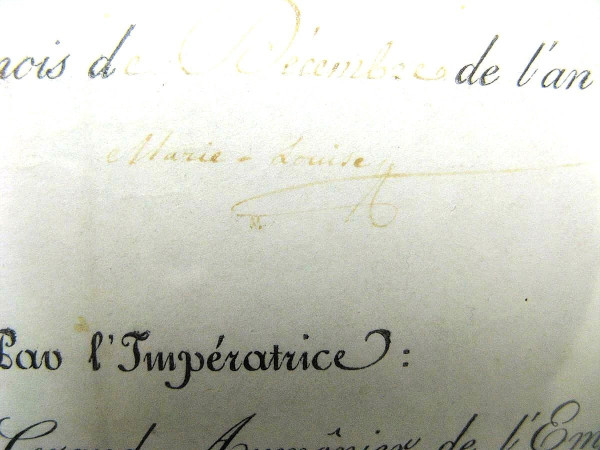 mois de Décembre de l'an
Marie-Louise
Par l'Impératrice :
Grand Aumônier de l'Em